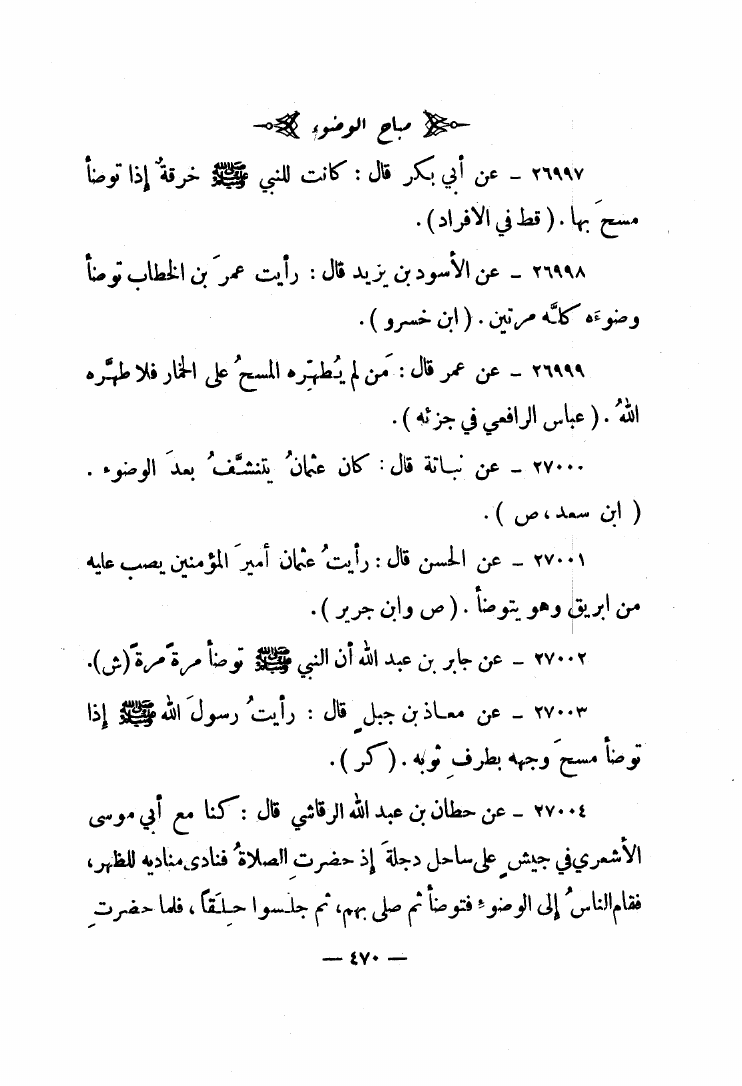 مباح الوضوء
٢٦٩٩٧ ـ عن أبي بكر قال : كانت للنبي ﷺ خرقةٌ إذا توضأ
مسحَ بها . ( قط في الافراد ) .
٢٦٩٩٨ ـ عن الأسود بن يزيد قال : رأيت عمرَ بن الخطاب توضأ
وضوءَه كلَّه مرتين . ( ابن خسرو ) .
٢٦٩٩٩ ـ عن عمر قال : مَن لم يُطهِّره المسحُ على الخمار فلا طهَّره
اللهُ . ( عباس الرافعي في جزئه ) .
٢٧٠٠٠ ـ عن نباتة قال : كان عثمانُ يتنشَّفُ بعدَ الوضوء .
( ابن سعد ، ص ) .
٢٧٠٠١ ـ عن الحسن قال : رأيتُ عثمان أميرَ المؤمنين يصب عليه
من ابريق وهو يتوضأ . ( ص وابن جرير ) .
٢٧٠٠٢ ـ عن جابر بن عبد الله أن النبي ﷺ توضأ مرةً مرةً (ش).
٢٧٠٠٣ ـ عن معاذ بن جبلٍ قال : رأيتُ رسولَ الله ﷺ إذا
توضأ مسحَ وجهه بطرفِ ثوبه . ( كر ) .
٢٧٠٠٤ ـ عن حطان بن عبد الله الرقاشي قال : كنا مع أبي موسى
الأشعري في جيشٍ على ساحل دجلةَ إذ حضرتِ الصلاةُ فنادى مناديه للظهر ،
فقام الناسُ إلى الوضوءِ فتوضأ ثم صلى بهم ، ثم جلسوا حِلَقاً ، فلما حضرتِ
— ٤٧٠ —